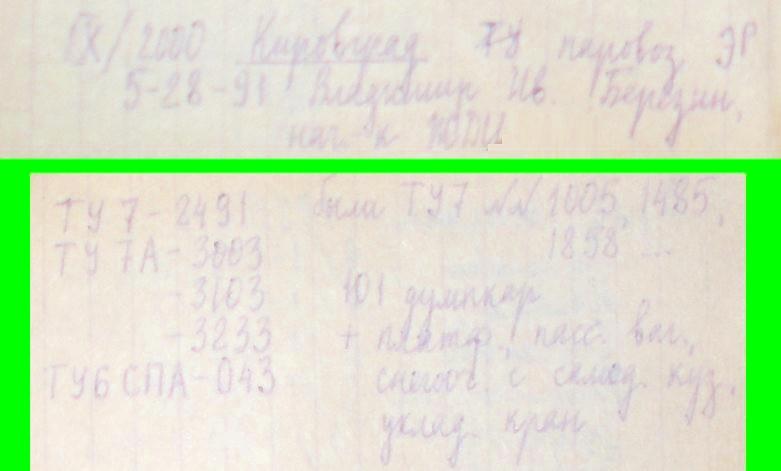 IX/2000 Кировград ТУ паровоз ЭР
5-28-91 Владимир Ив. Березин,
нач-к
ТУ7-2491 были ТУ7 NN 1005, 1485,
ТУ7А-3003 1858 ...
-3103 101 думпкар
-3233 + платф., пасс. ваг.,
ТУ6СПА-043 снегооч. с самод. куз.,
уклад. кран